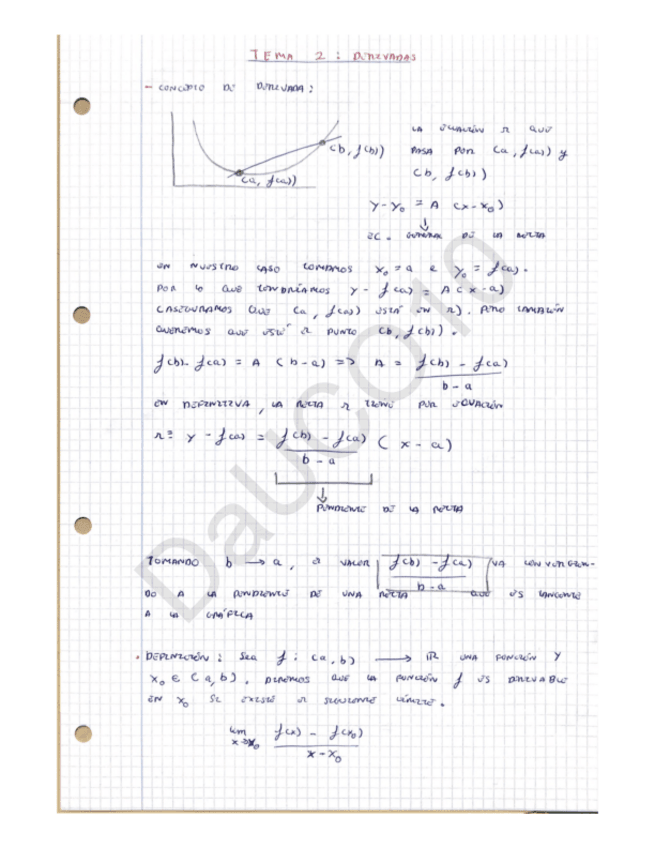 TEMA 2: DERIVADAS
- CONCEPTO DE DERIVADA:
(b, f(b))
(a, f(a))
LA ECUACIÓN r QUE
PASA POR (a, f(a)) y
(b, f(b))
y-y₀ = A (x-x₀)
EC. GENERAL DE LA RECTA
EN NUESTRO CASO TOMAMOS x₀ = a e y₀ = f(a).
POR LO QUE TENDRÍAMOS y - f(a) = A(x-a)
(ASEGURAMOS QUE (a, f(a)) ESTÁ EN r). PERO TAMBIÉN
QUEREMOS QUE ESTÉ EL PUNTO (b, f(b)).
f(b)-f(a) = A (b-a) => A = f(b) - f(a) / b - a
EN DEFINITIVA, LA RECTA r TIENE POR ECUACIÓN
r ≡ y - f(a) = f(b) - f(a) / b - a (x - a)
PENDIENTE DE LA RECTA
TOMANDO b → a, EL VALOR f(b) - f(a) / b - a VA CONVERGIEN-
DO A LA PENDIENTE DE UNA RECTA QUE ES TANGENTE
A LA GRÁFICA
. DEFINICIÓN: Sea f: (a, b) → ℝ UNA FUNCIÓN Y
x₀ ∈ (a, b). DIREMOS QUE LA FUNCIÓN f ES DERIVABLE
EN x₀ SI EXISTE EL SIGUIENTE LÍMITE.
lim x→x₀ f(x) - f(x₀) / x - x₀
DaUCO10